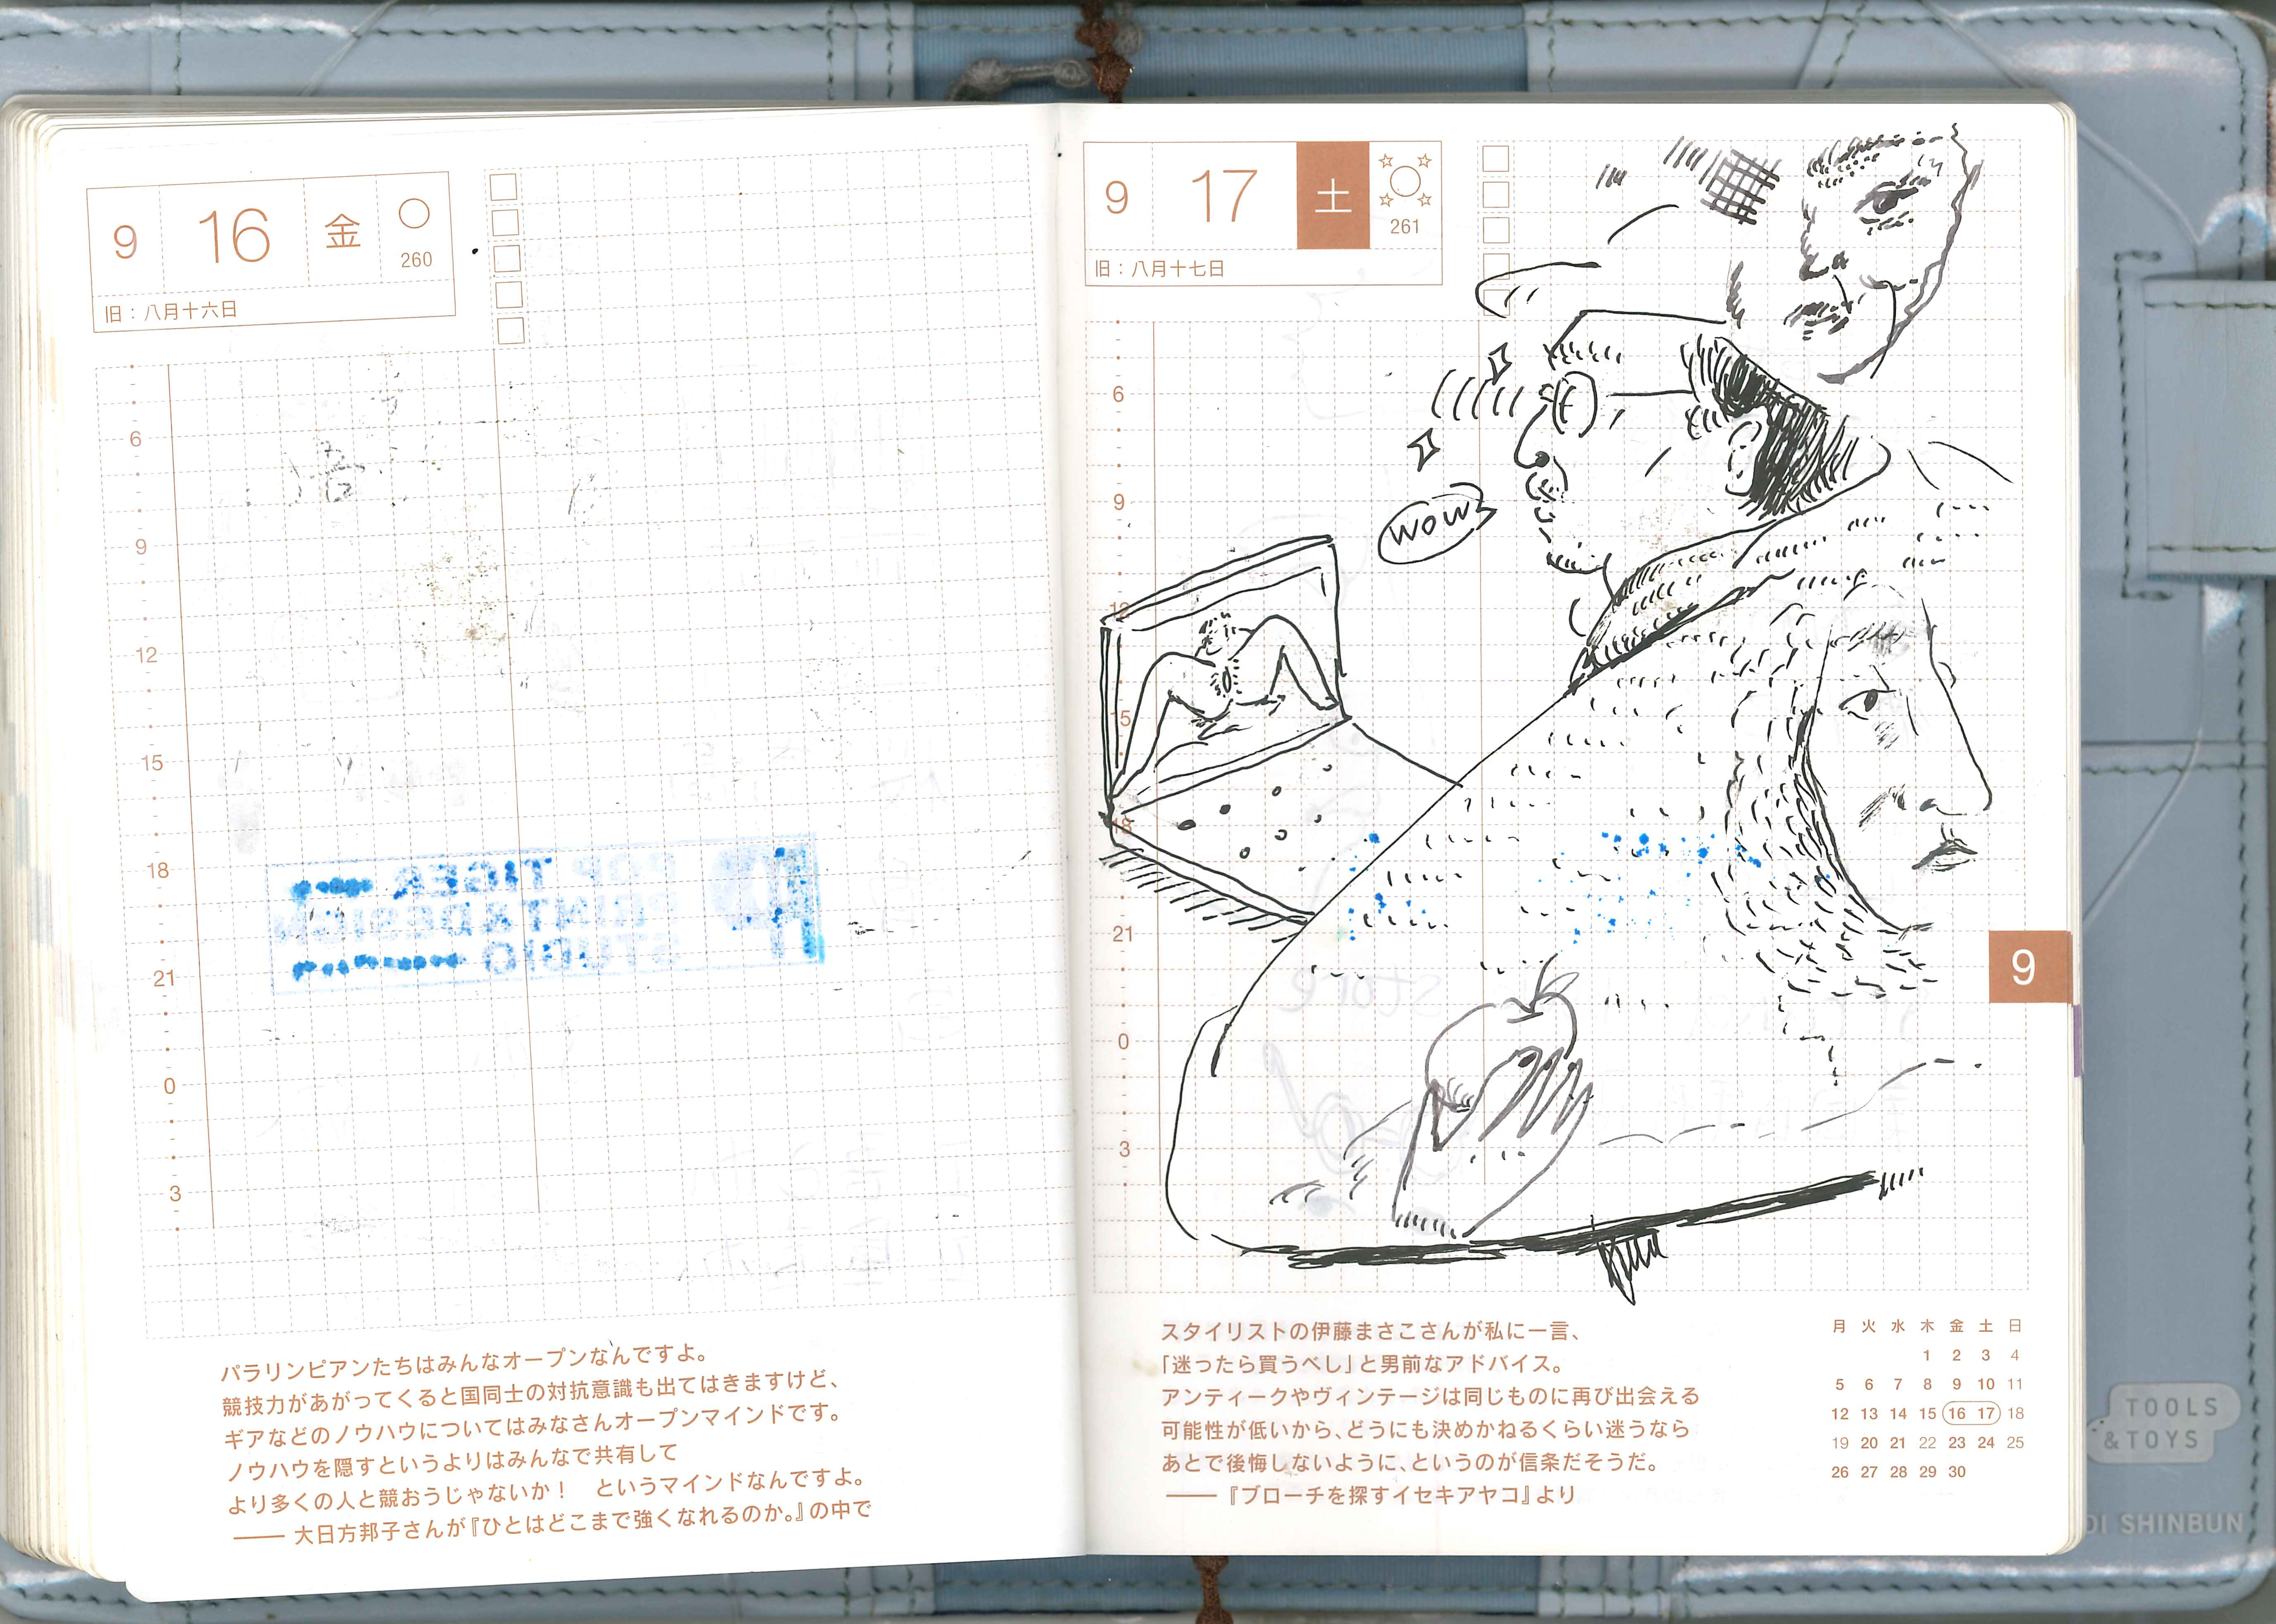 9 16 金 260
旧：八月十六日
6
9
12
15
18
21
0
3
POP TIGER
PRINT&DESIGN
STUDIO
パラリンピアンたちはみんなオープンなんですよ。
競技力があがってくると国同士の対抗意識も出てはきますけど、
ギアなどのノウハウについてはみなさんオープンマインドです。
ノウハウを隠すというよりはみんなで共有して
より多くの人と競おうじゃないか！　というマインドなんですよ。
―― 大日方邦子さんが『ひとはどこまで強くなれるのか。』の中で
9 17 土 261
旧：八月十七日
6
9
12
15
18
21
0
3
WOW
store
9
スタイリストの伊藤まさこさんが私に一言、
「迷ったら買うべし」と男前なアドバイス。
アンティークやヴィンテージは同じものに再び出会える
可能性が低いから、どうにも決めかねるくらい迷うなら
あとで後悔しないように、というのが信条だそうだ。
―― 『ブローチを探すイセキアヤコ』より
月 火 水 木 金 土 日
1 2 3 4
5 6 7 8 9 10 11
12 13 14 15 16 17 18
19 20 21 22 23 24 25
26 27 28 29 30
TOOLS
&TOYS
SHINBUN